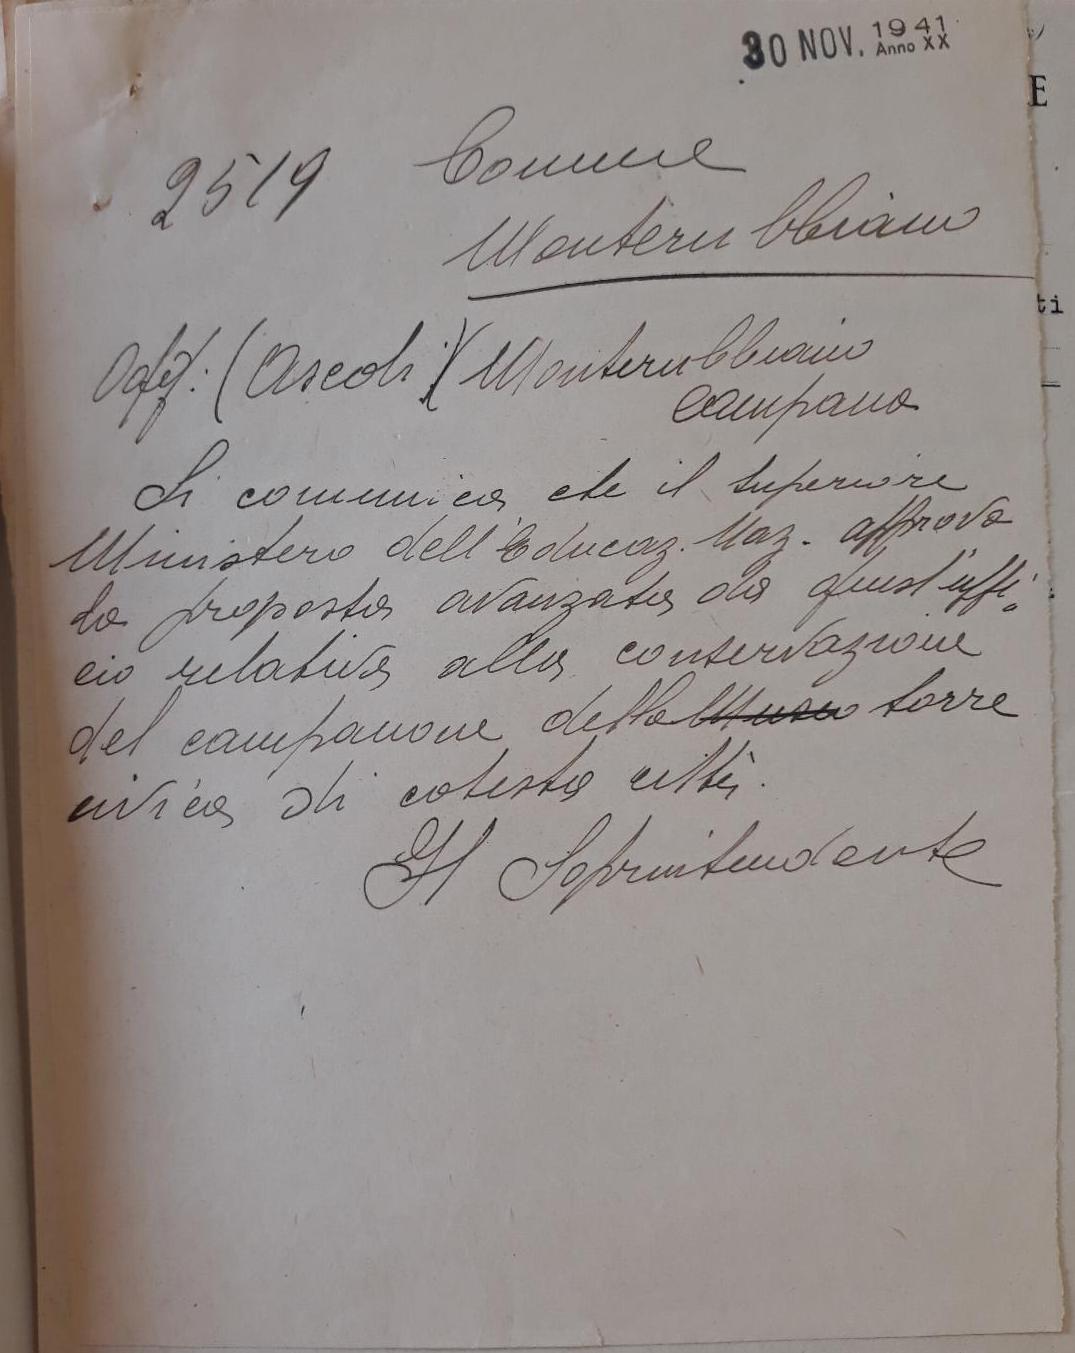 30 NOV. 1941
Anno XX
E
2519 Comune
Monterubbiano
ti
Ogg.: (Ascoli) Monterubbiano
campana
Si comunica che il superiore
Ministero dell'Educaz. Naz. approva
la proposta avanzata da quest'uffi=
cio relativa alla conservazione
del campanone della torre
civica di cotesta città.
Il Soprintendente